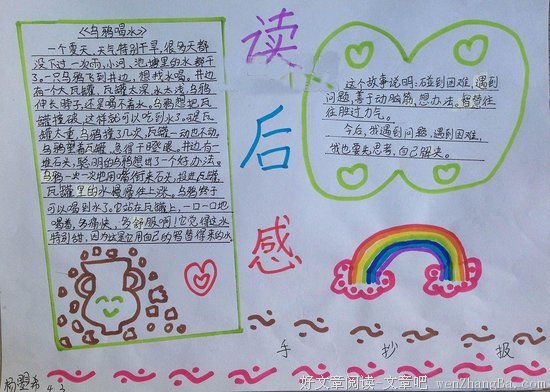 《乌鸦喝水》
一个夏天，天气特别干旱，很多天都
没下过一次雨，小河，池塘里的水都干
了。一只乌鸦飞到井边，想找水喝。井边
有一个大瓦罐，瓦罐太深水太浅，乌鸦
伸长脖子，还是喝不着水。乌鸦想把瓦
罐撞破，这样就可以吃到水了。可是瓦
罐太重，乌鸦撞了几次，瓦罐一动也不动，
乌鸦望着瓦罐，急得干瞪眼。井边有一
堆石头，聪明的乌鸦想出了一个好办法。
乌鸦一次一次把用嘴衔来石头，投进瓦罐，
瓦罐里的水慢慢往上涨。乌鸦终于
可以喝到水了。它站在瓦罐上，一口一口地
喝着，多痛快，多舒服啊！它觉得这水
特别甜，因为这是它用自己的智慧得来的水。
读
后
感
这个故事说明：碰到困难，遇到
问题，善于动脑筋，想办法。智慧往
往胜过力气。
今后，我遇到问题，遇到困难，
我也要先思考，自己解决。
手 抄 报
4.3
好文章阅读-文章吧 wenZhangBa.com